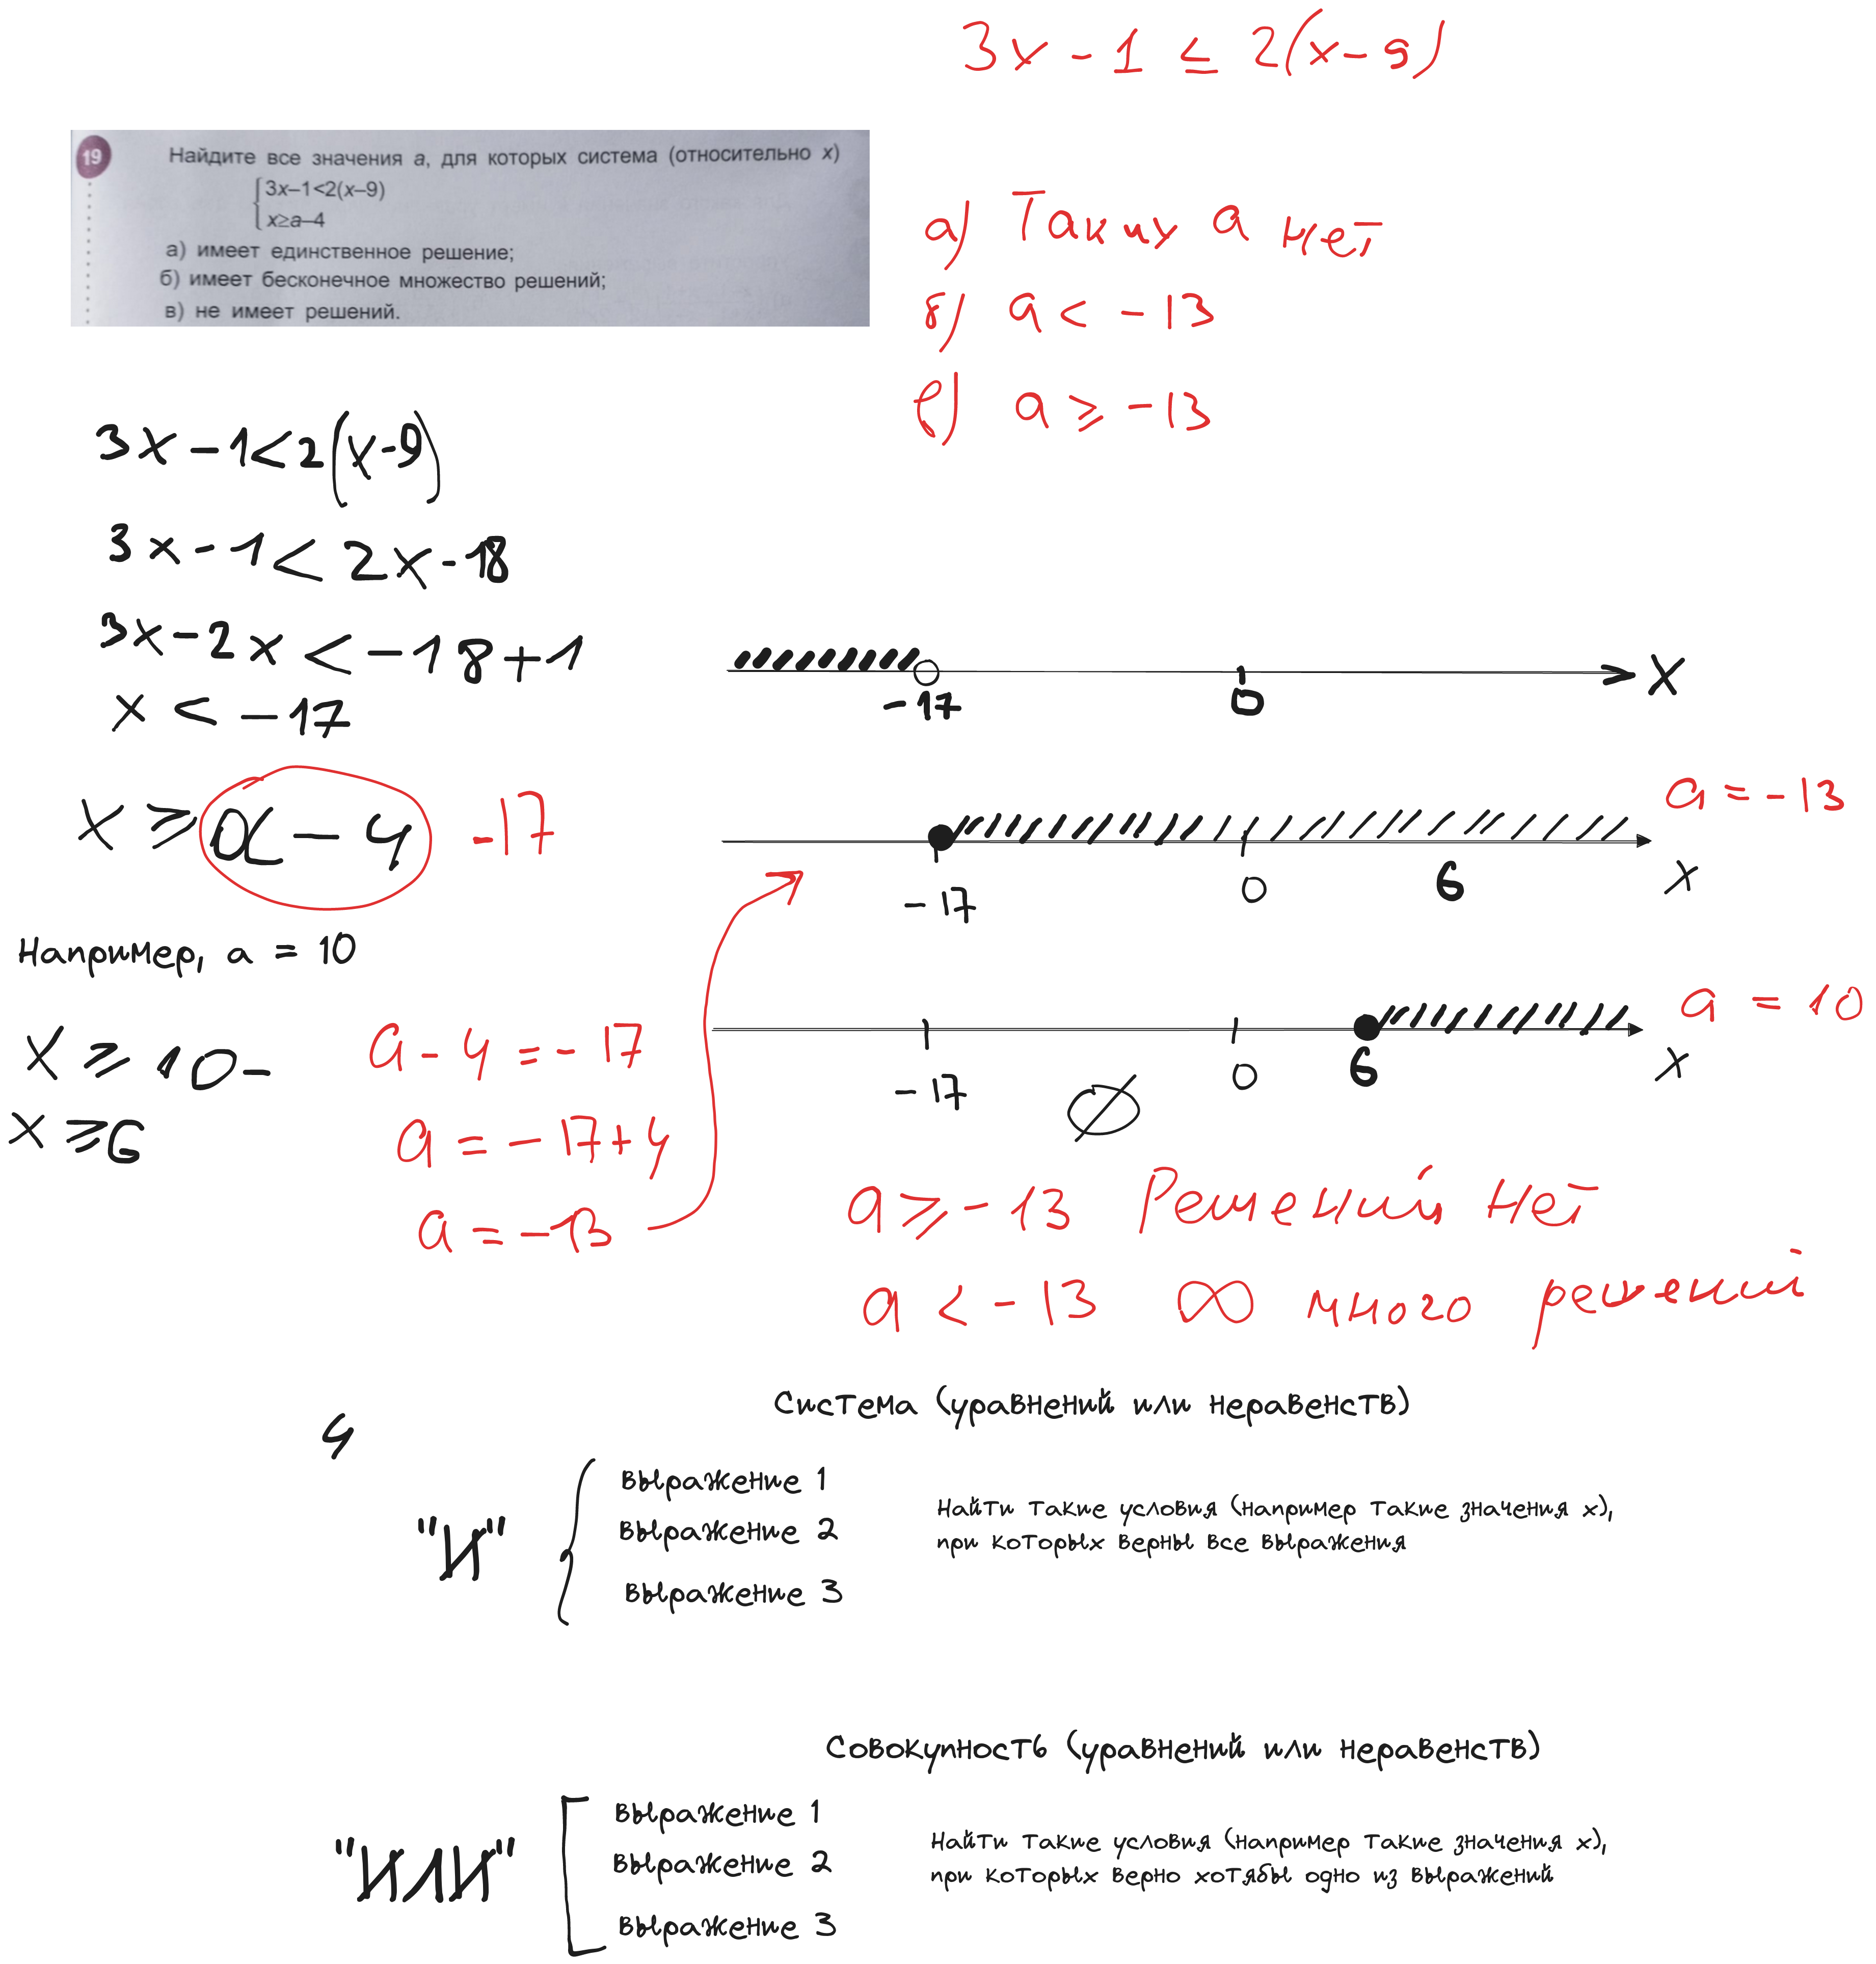 3x - 1 ≤ 2(x - 9)
19
Найдите все значения a, для которых система (относительно x)
3x–1<2(x–9)
x≥a–4
а) имеет единственное решение;
б) имеет бесконечное множество решений;
в) не имеет решений.
а) Таких а нет
б) a < -13
в) a ≥ -13
3x - 1 < 2(x-9)
3x - 1 < 2x - 18
3x - 2x < -18 + 1
x < -17
-17 0 x
x ≥ a - 4 -17
a = -13
-17 0 6 x
Например, a = 10
x ≥ 10 -
x ≥ 6
a - 4 = - 17
a = - 17 + 4
a = -13
a = 10
-17 0 6 x
∅
a ≥ - 13 Решений нет
a < - 13 ∞ много решений
Система (уравнений или неравенств)
4
"И"
выражение 1
выражение 2
выражение 3
Найти такие условия (например такие значения x),
при которых верны все выражения
Совокупность (уравнений или неравенств)
"ИЛИ"
выражение 1
выражение 2
выражение 3
Найти такие условия (например такие значения x),
при которых верно хотябы одно из выражений